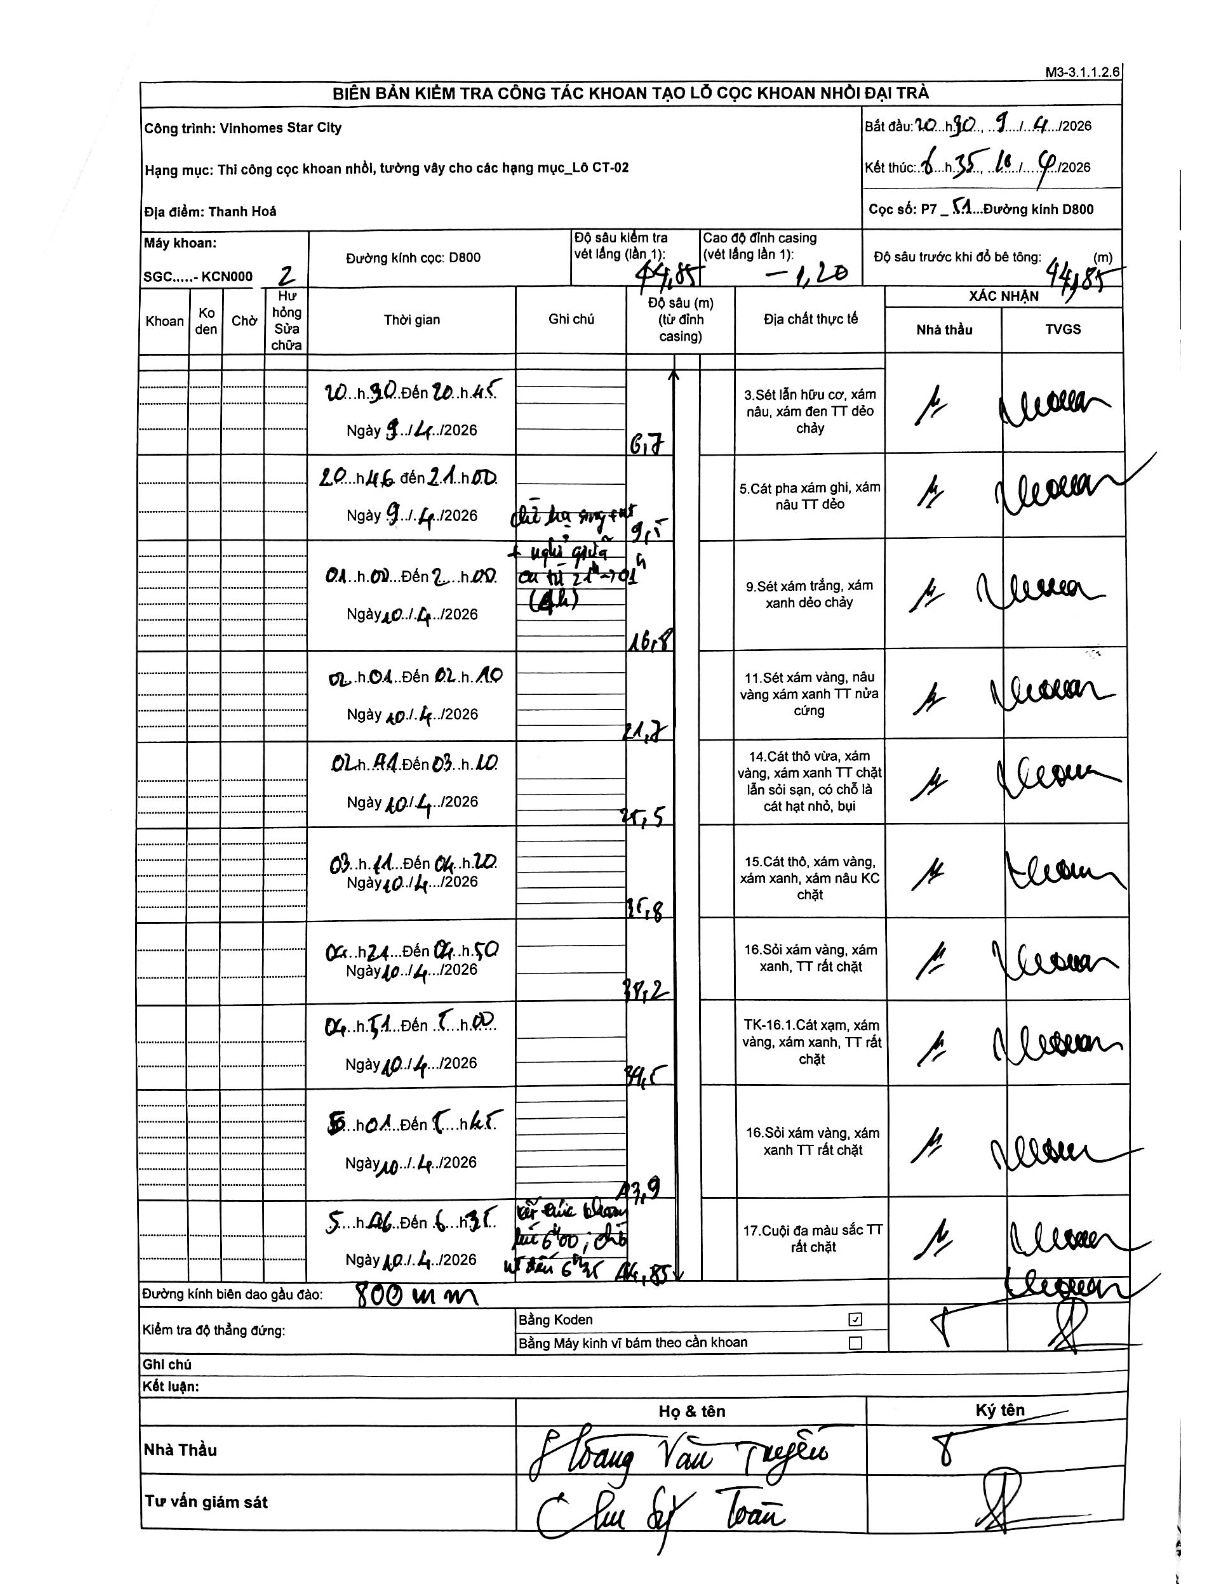 M3-3.1.1.2.6
BIÊN BẢN KIỂM TRA CÔNG TÁC KHOAN TẠO LỖ CỌC KHOAN NHỒI ĐẠI TRÀ
Công trình: Vinhomes Star City
Bắt đầu: 20...h.30..., ..9..../...4.../2026
Hạng mục: Thi công cọc khoan nhồi, tường vây cho các hạng mục_Lô CT-02
Kết thúc: 6...h.35..., ..10../...4.../2026
Địa điểm: Thanh Hoá
Cọc số: P7 _ 51...Đường kính D800
Máy khoan:
SGC.....- KCN000 2
Đường kính cọc: D800
Độ sâu kiểm tra
vét lắng (lần 1):
44,85
Cao độ đỉnh casing
(vét lắng lần 1):
-1,20
Độ sâu trước khi đổ bê tông: 44,85 (m)
Khoan
Ko
den
Chờ
Hư
hỏng
Sửa
chữa
Thời gian
Ghi chú
Độ sâu (m)
(từ đỉnh
casing)
Địa chất thực tế
XÁC NHẬN
Nhà thầu
TVGS
20...h.30.Đến 20..h.45.
Ngày 9../4../2026
6,7
3.Sét lẫn hữu cơ, xám
nâu, xám đen TT dẻo
chảy
20...h46 đến 21..h00.
Ngày 9../.4../2026
9,5
5.Cát pha xám ghi, xám
nâu TT dẻo
+ nghỉ giữa
ca từ 21h→01h
(4h)
01.h.00...Đến 2...h.00.
Ngày 10../.4../2026
16,8
9.Sét xám trắng, xám
xanh dẻo chảy
02.h.01..Đến 02.h.10
Ngày 10./.4../2026
21,7
11.Sét xám vàng, nâu
vàng xám xanh TT nửa
cứng
02h.11.Đến 03..h.10.
Ngày 10./.4../2026
25,5
14.Cát thô vừa, xám
vàng, xám xanh TT chặt
lẫn sỏi sạn, có chỗ là
cát hạt nhỏ, bụi
03..h.11...Đến 04..h.20.
Ngày 10./.4.../2026
35,8
15.Cát thô, xám vàng,
xám xanh, xám nâu KC
chặt
04..h21...Đến 04..h.50
Ngày 10../.4.../2026
38,2
16.Sỏi xám vàng, xám
xanh, TT rất chặt
04..h.51...Đến .5...h.00.
Ngày 10./.4../2026
39,5
TK-16.1.Cát xạm, xám
vàng, xám xanh, TT rất
chặt
5...h01...Đến 5...h45.
Ngày 10../.4../2026
43,9
16.Sỏi xám vàng, xám
xanh TT rất chặt
5....h.46..Đến .6...h.35..
Ngày 10./.4../2026
kết thúc khoan
lúc 6h00; chờ
đến 6h35
44,85
17.Cuội đa màu sắc TT
rất chặt
Đường kính biên dao gầu đào: 800 mm
Kiểm tra độ thẳng đứng:
Bằng Koden ☑
Bằng Máy kinh vĩ bám theo cần khoan ☐
Ghi chú
Kết luận:
Họ & tên
Ký tên
Nhà Thầu
Hoàng Văn Tuyền
Tư vấn giám sát
Chu Sỹ Toàn